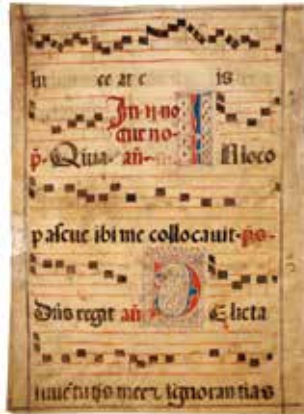 is
In ij no
ctur no-
p. Quia añ- IN loco
pascue ibi me collocavit-ps-
Dñs regit añ DElicta
iuuētutis mee z ignorantias